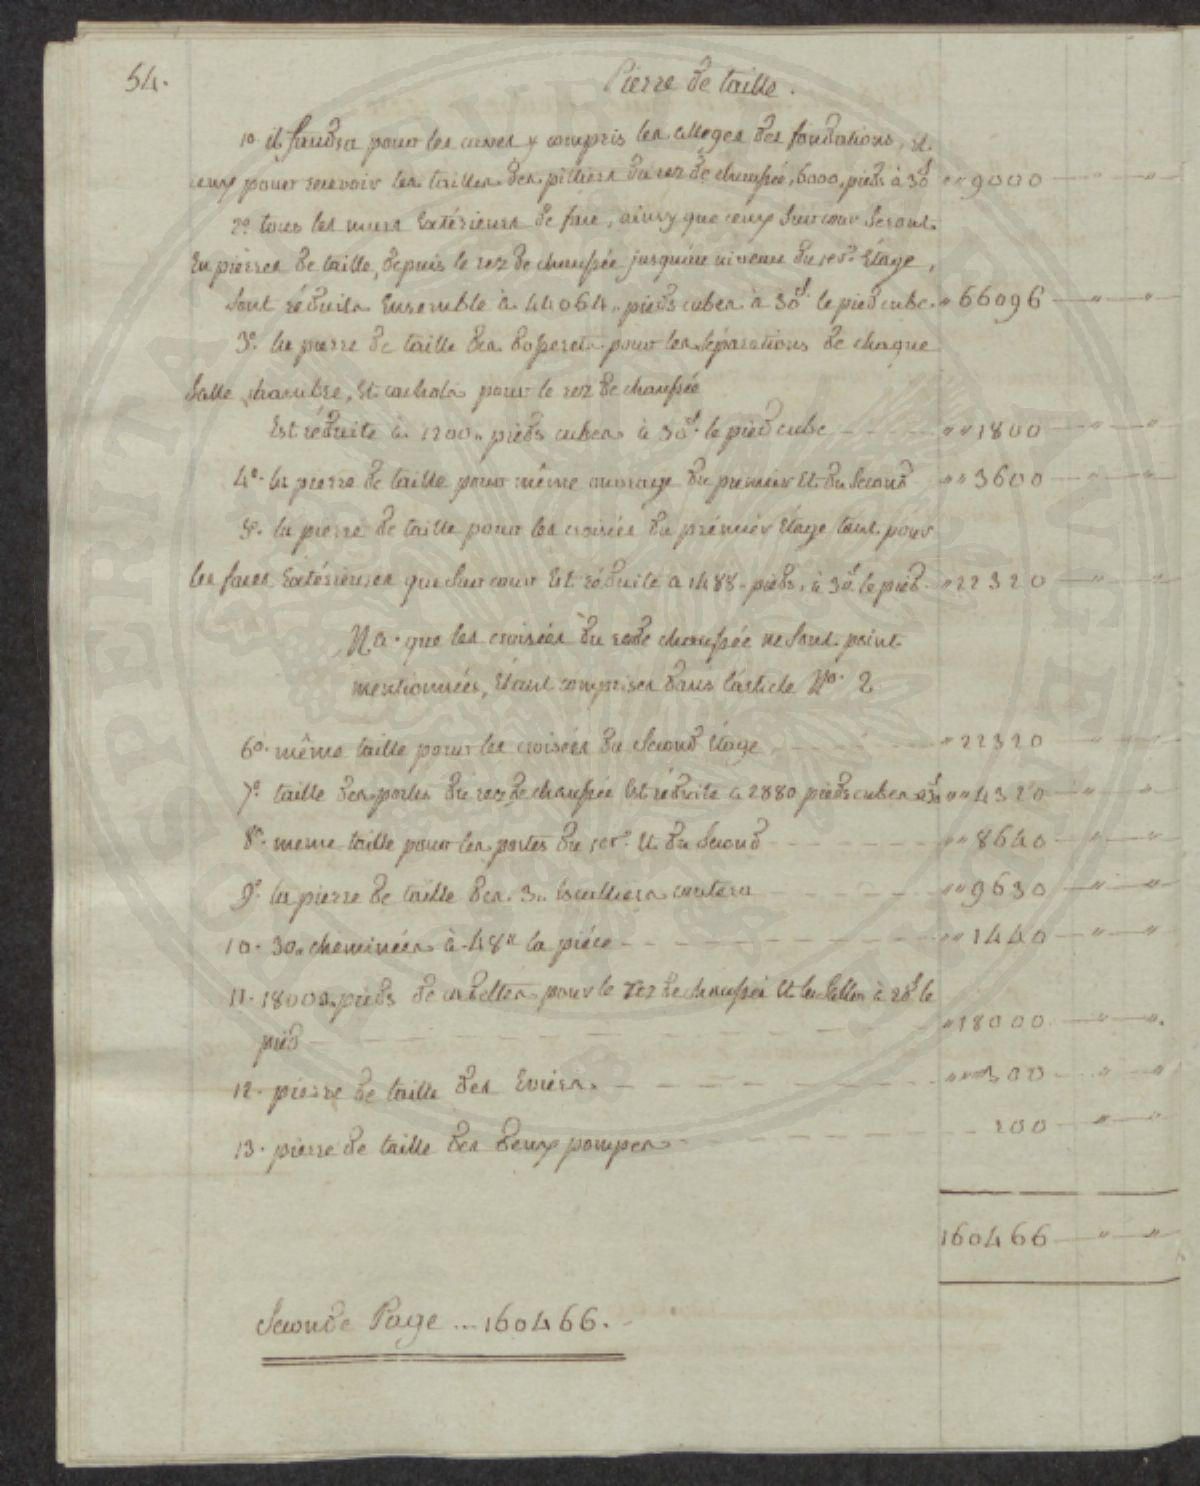 54.
Pierre de taille.
1o. il faudra pour les caves y compris les alleges des fondations, et
ceux pour recevoir les tailles des pilliers du rez de chaussée, 6000, pieds à 30s " " 9000 — " — "
2o. tous les murs Extérieurs de face, ainsy que ceux sur cour seront
En pierres de taille, depuis le rez de chaussée jusqu'au niveau du 1er. Etage,
sont réduits Ensemble à 44064 " pieds cubes à 30s. le pied cube " 66096 — " — "
3o. la pierre de taille des pour les séparations de chaque
salle, chambre, Et cachots pour le rez de chaussée
Est réduite à 1200 " pieds cubes à 30s. le pied cube " " 1800 — " — "
4o. la pierre de taille pour même ouvrage du premier Et du second " " 3600 — " — "
5o. la pierre de taille pour les croisées du prémiér Etage tant pour
les faces Extérieures que sur cour Est réduite a 1488 - pieds, à 30s. le pied " 22320 — " — "
Na. que les croisées du rez de chaussée ne sont point
mentionnées, Etant comprises dans l'article No. 2
6o. même taille pour les croisées du second Etage " 22320 — " — "
7o. taille des portes du rez de chaussée Est réduite a 2880 pieds cubes a 30s " " 4320 — " — "
8o. meme taille pour les portes du 1er. Et du second " " 8640 — " — "
9o. la pierre de taille des 3 " Escalliers coutera " " 9630 — " — "
10. 30 " cheminées à 48 # la piéce " " 1440 — " — "
11. 18000 " pieds de cadettes pour le rez de chaussée Et les salles à 20s le
pied " 18000 — " — ".
12. pierre de taille des Eviers. 300 — " — "
13. pierre de taille des deux pompes 200 — " — "
160466 — " — "
Seconde Page ... 160466.